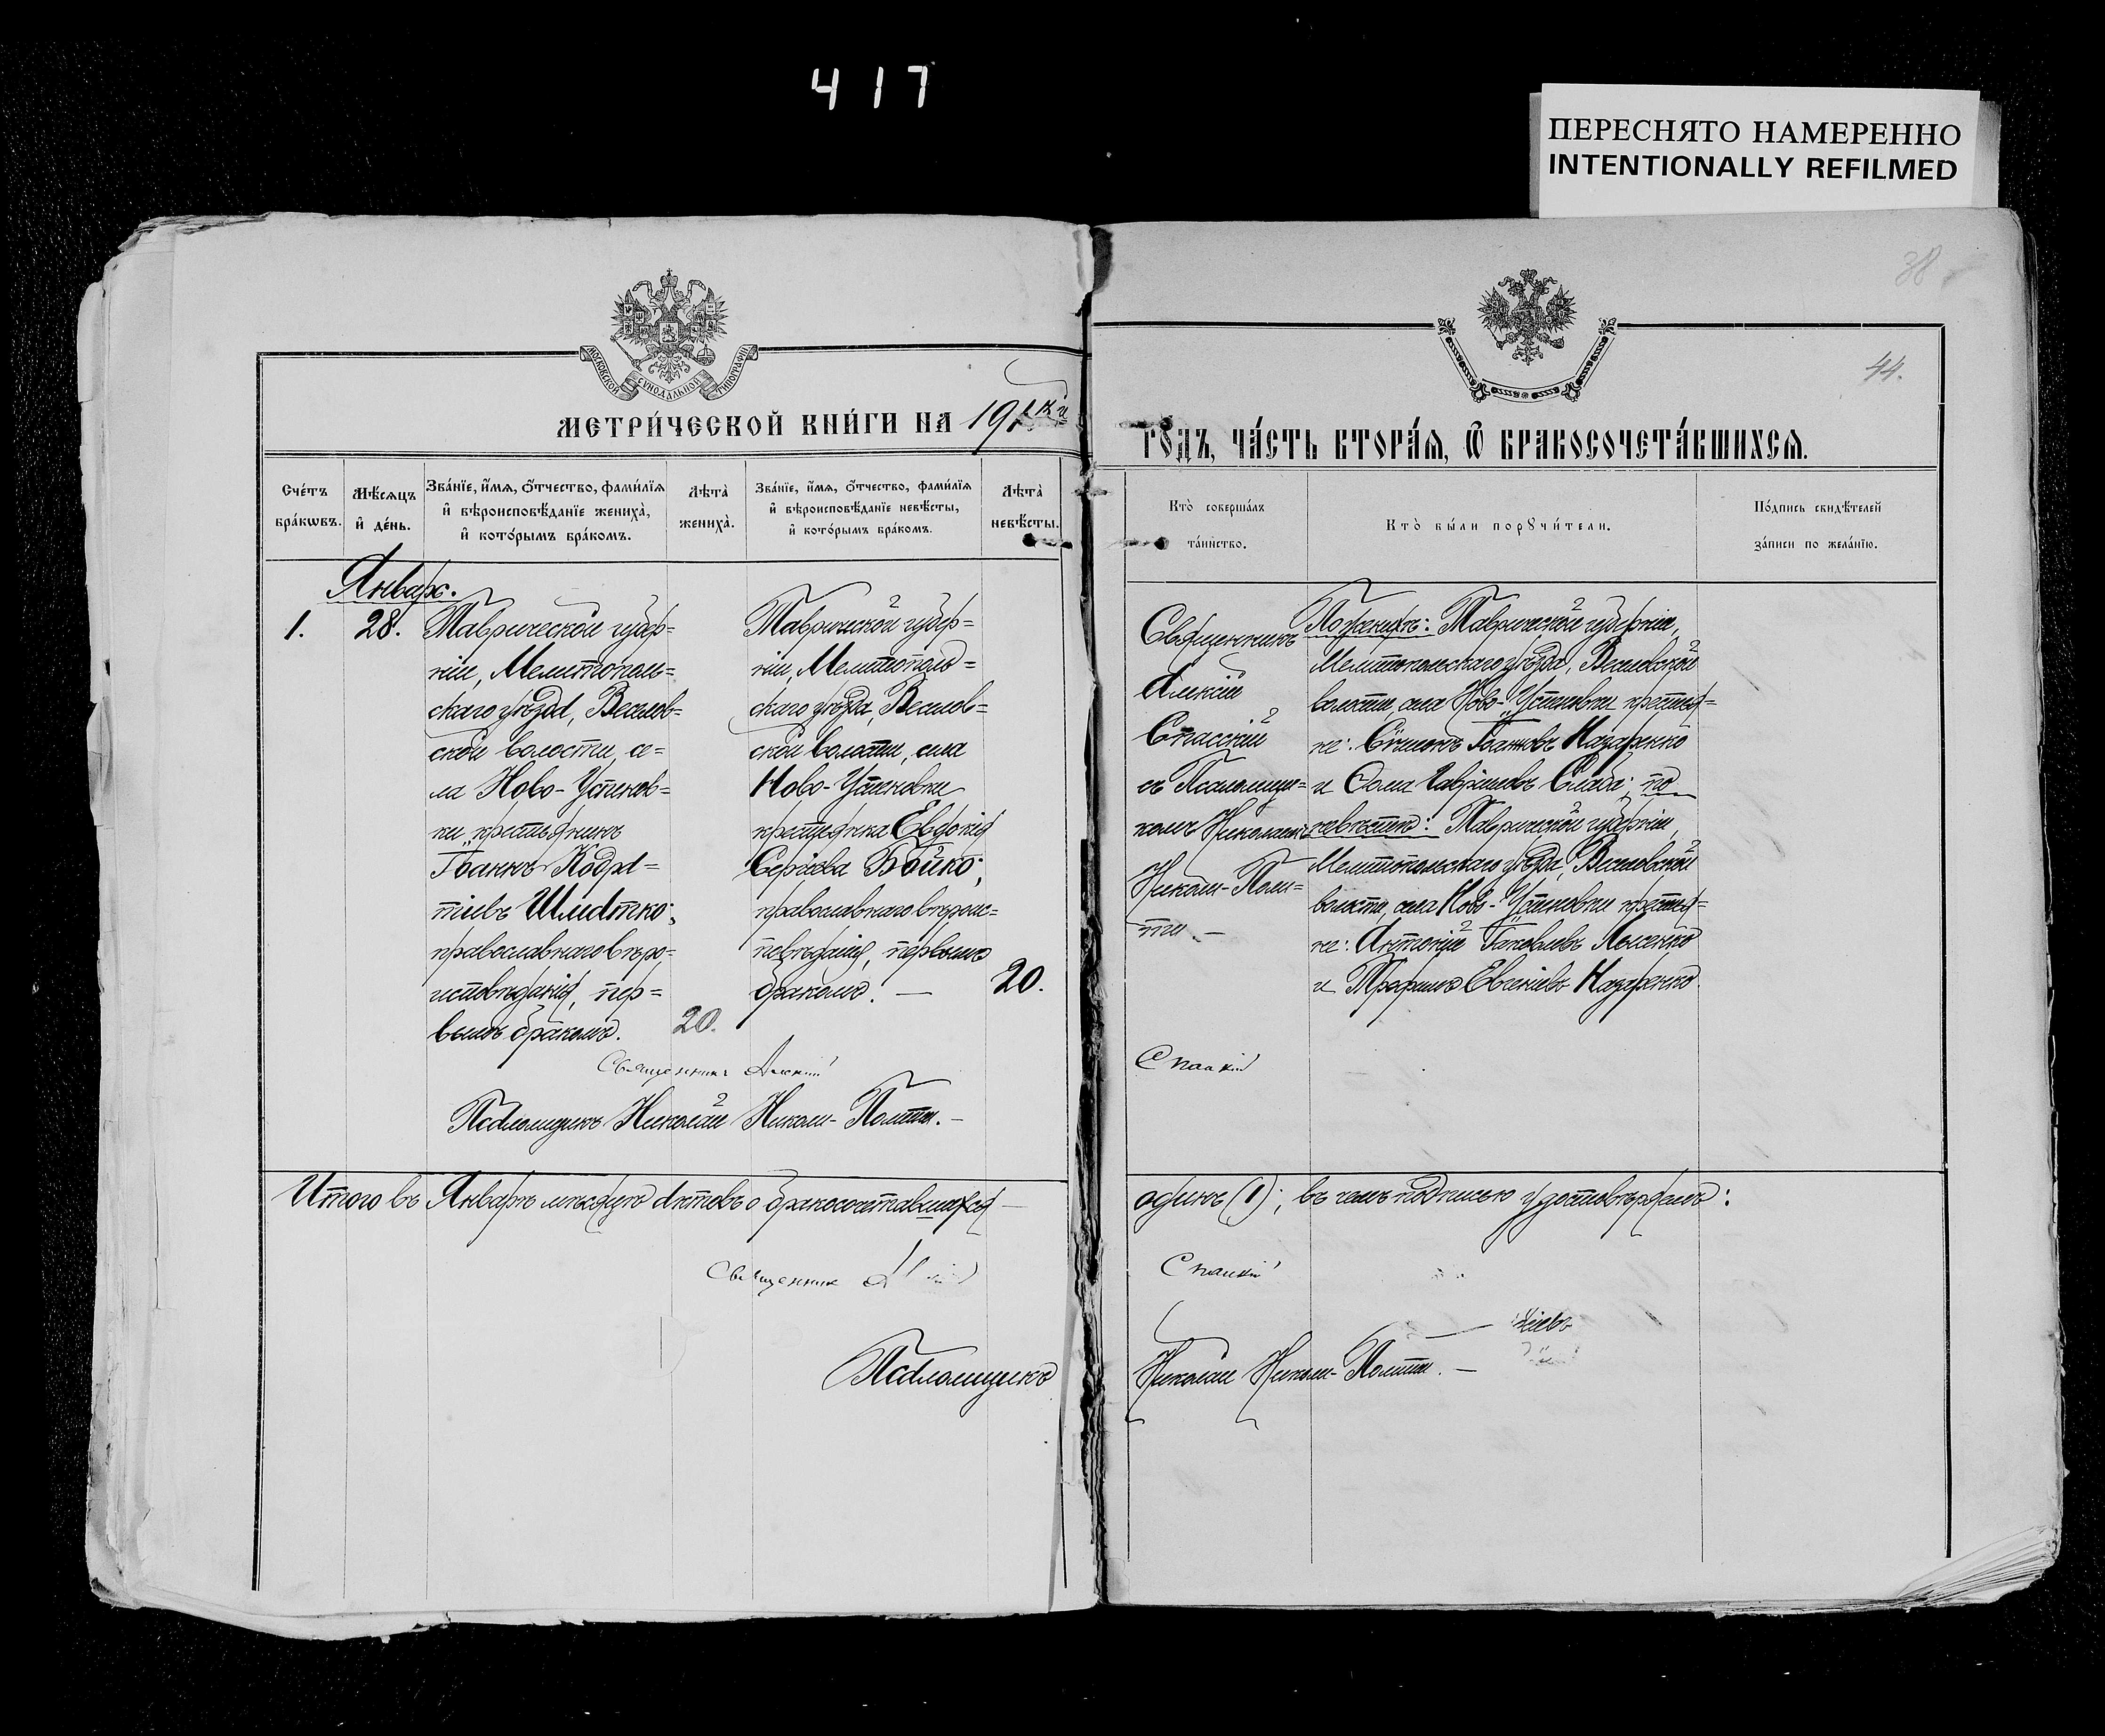 417
ПЕРЕСНЯТО НАМЕРЕННО
INTENTIONALLY REFILMED
38
44.
МОСКОВСКОЙ СѴНОДАЛЬНОЙ ТИПОГРАФІИ
МЕТРИ́ЧЕСКОЙ КНИ́ГИ НА 191
ГО́ДЪ, ЧА́СТЬ ВТОРА́Я, Ѿ БРАКОСОЧЕТА́ВШИХСЯ.
Сче́тъ бра́кѡвъ.
Мѣ́сяцъ и҆ де́нь.
Зва́нїе, и҆́мя, ѻ҆́тчество, фами́лїя и҆ вѣроисповѣ́данїе жениха̀, и҆ кото́рымъ бра́комъ.
Лѣта̀ жениха̀.
Зва́нїе, и҆́мя, ѻ҆́тчество, фами́лїя и҆ вѣроисповѣ́данїе невѣ́сты, и҆ кото́рымъ бра́комъ.
Лѣта̀ невѣ́сты.
Кто̀ соверша́лъ та́инство.
Кто̀ бы́ли порꙋчи́тели.
По́дпись свидѣ́телей за́писи по жела́нїю.
Январь.
1.
28.
Таврической губер=
ніи, Мелитополь=
скаго уѣзда, Веселов=
ской волости, се=
ла Ново-Успенов=
ки крестьянинъ
Іоаннъ Кодра=
тіевъ Шматко;
православнаго вѣро=
исповѣданія, пер=
вымъ бракомъ.
20.
Таврической губер=
ніи, Мелитополь=
скаго уѣзда, Веселов=
ской волости, села
Ново-Успеновки
крестьянка Евдокія
Сергіева Бойко;
православнаго вѣроис=
повѣданія, первымъ
бракомъ. —
20.
Священникъ
Алексій
Спасскій
съ Псаломщи=
комъ Николаемъ
Николи-Поли=
ти. —
По женихѣ: Таврической губерніи,
Мелитопольскаго уѣзда, Веселовской
волости, села Ново-Успеновки крестья=
не: Сѷмеонъ Іоанновъ Назаренко
и Ѳома Гавріиловъ Слада; по
невѣстѣ: Таврической губерніи,
Мелитопольскаго уѣзда, Веселовской
волости, села Ново-Успеновки крестья=
не: Антоній Іаковлевъ Лысенко
и Трофимъ Евгеніевъ Назаренко.
Священникъ Алексій Спасскій
Псаломщикъ Николай Николи-Полити. —
Итого въ Январѣ мѣсяцѣ актовъ о бракосочетавшихся —
одинъ (1); въ чемъ подписью удостовѣряемъ:
Священникъ Спасскій
Псаломщикъ Николай Николи-Полити. —